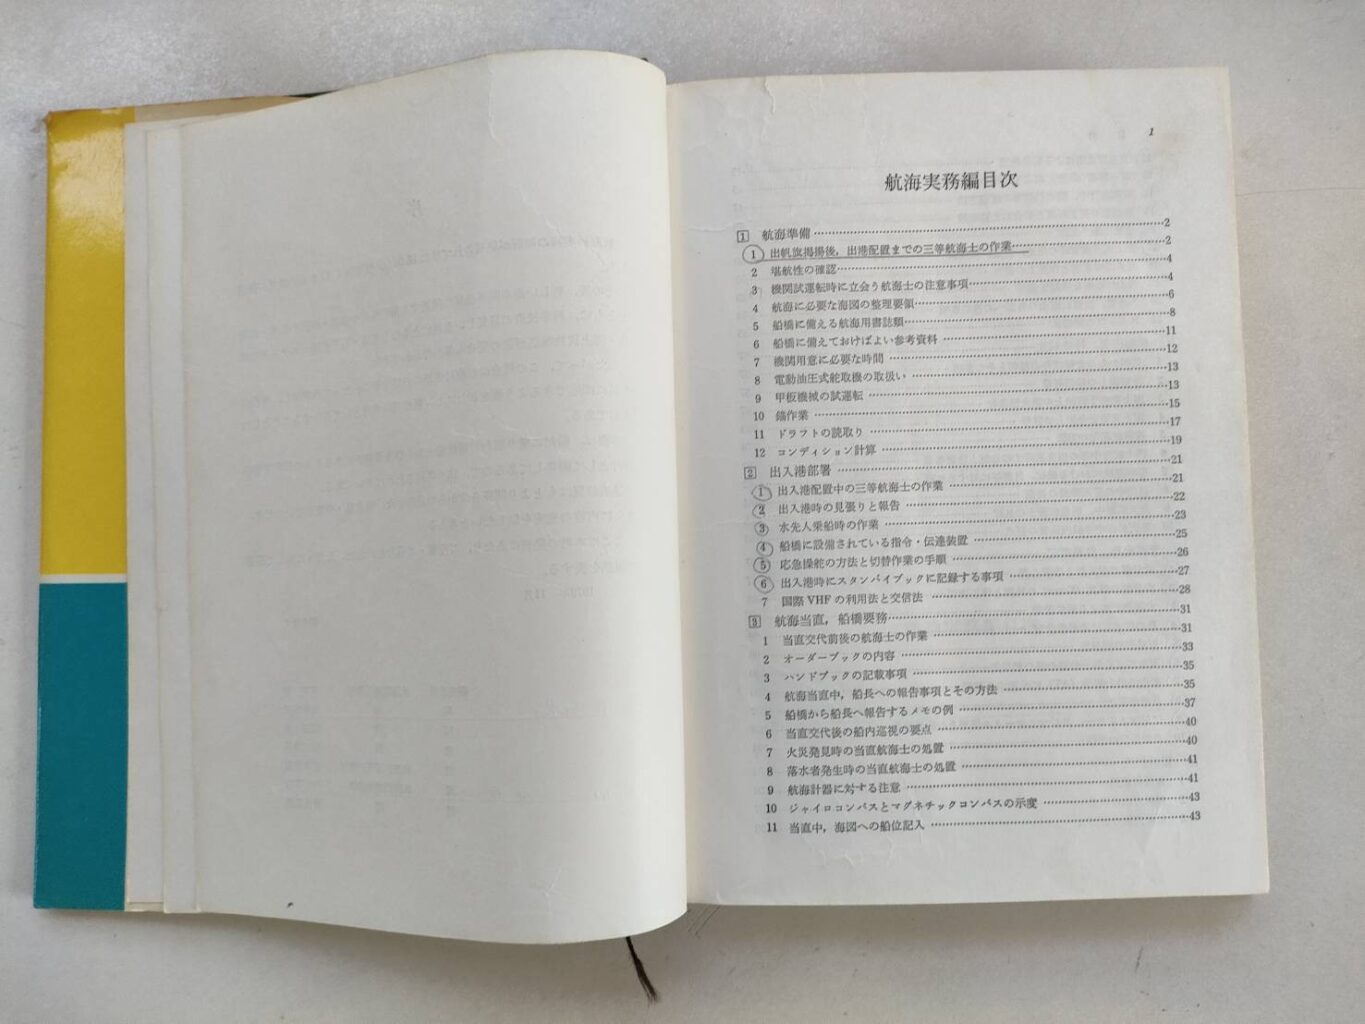 1
航海実務編目次
1 航海準備……2
1 出帆旗掲揚後，出港配置までの三等航海士の作業……2
2 堪航性の確認……4
3 機関試運転時に立会う航海士の注意事項……4
4 航海に必要な海図の整理要領……6
5 船橋に備える航海用書誌類……8
6 船橋に備えておけばよい参考資料……11
7 機関用意に必要な時間……12
8 電動油圧式舵取機の取扱い……13
9 甲板機械の試運転……13
10 錨作業……15
11 ドラフトの読取り……17
12 コンディション計算……19
2 出入港部署……21
1 出入港配置中の三等航海士の作業……21
2 出入港時の見張りと報告……22
3 水先人乗船時の作業……23
4 船橋に設備されている指令・伝達装置……25
5 応急操舵の方法と切替作業の手順……26
6 出入港時にスタンバイブックに記録する事項……27
7 国際VHFの利用法と交信法……28
3 航海当直，船橋要務……31
1 当直交代前後の航海士の作業……31
2 オーダーブックの内容……33
3 ハンドブックの記載事項……35
4 航海当直中，船長への報告事項とその方法……35
5 船橋から船長へ報告するメモの例……37
6 当直交代後の船内巡視の要点……40
7 火災発見時の当直航海士の処置……40
8 落水者発生時の当直航海士の処置……41
9 航海計器に対する注意……41
10 ジャイロコンパスとマグネチックコンパスの示度……43
11 当直中，海図への船位記入……43